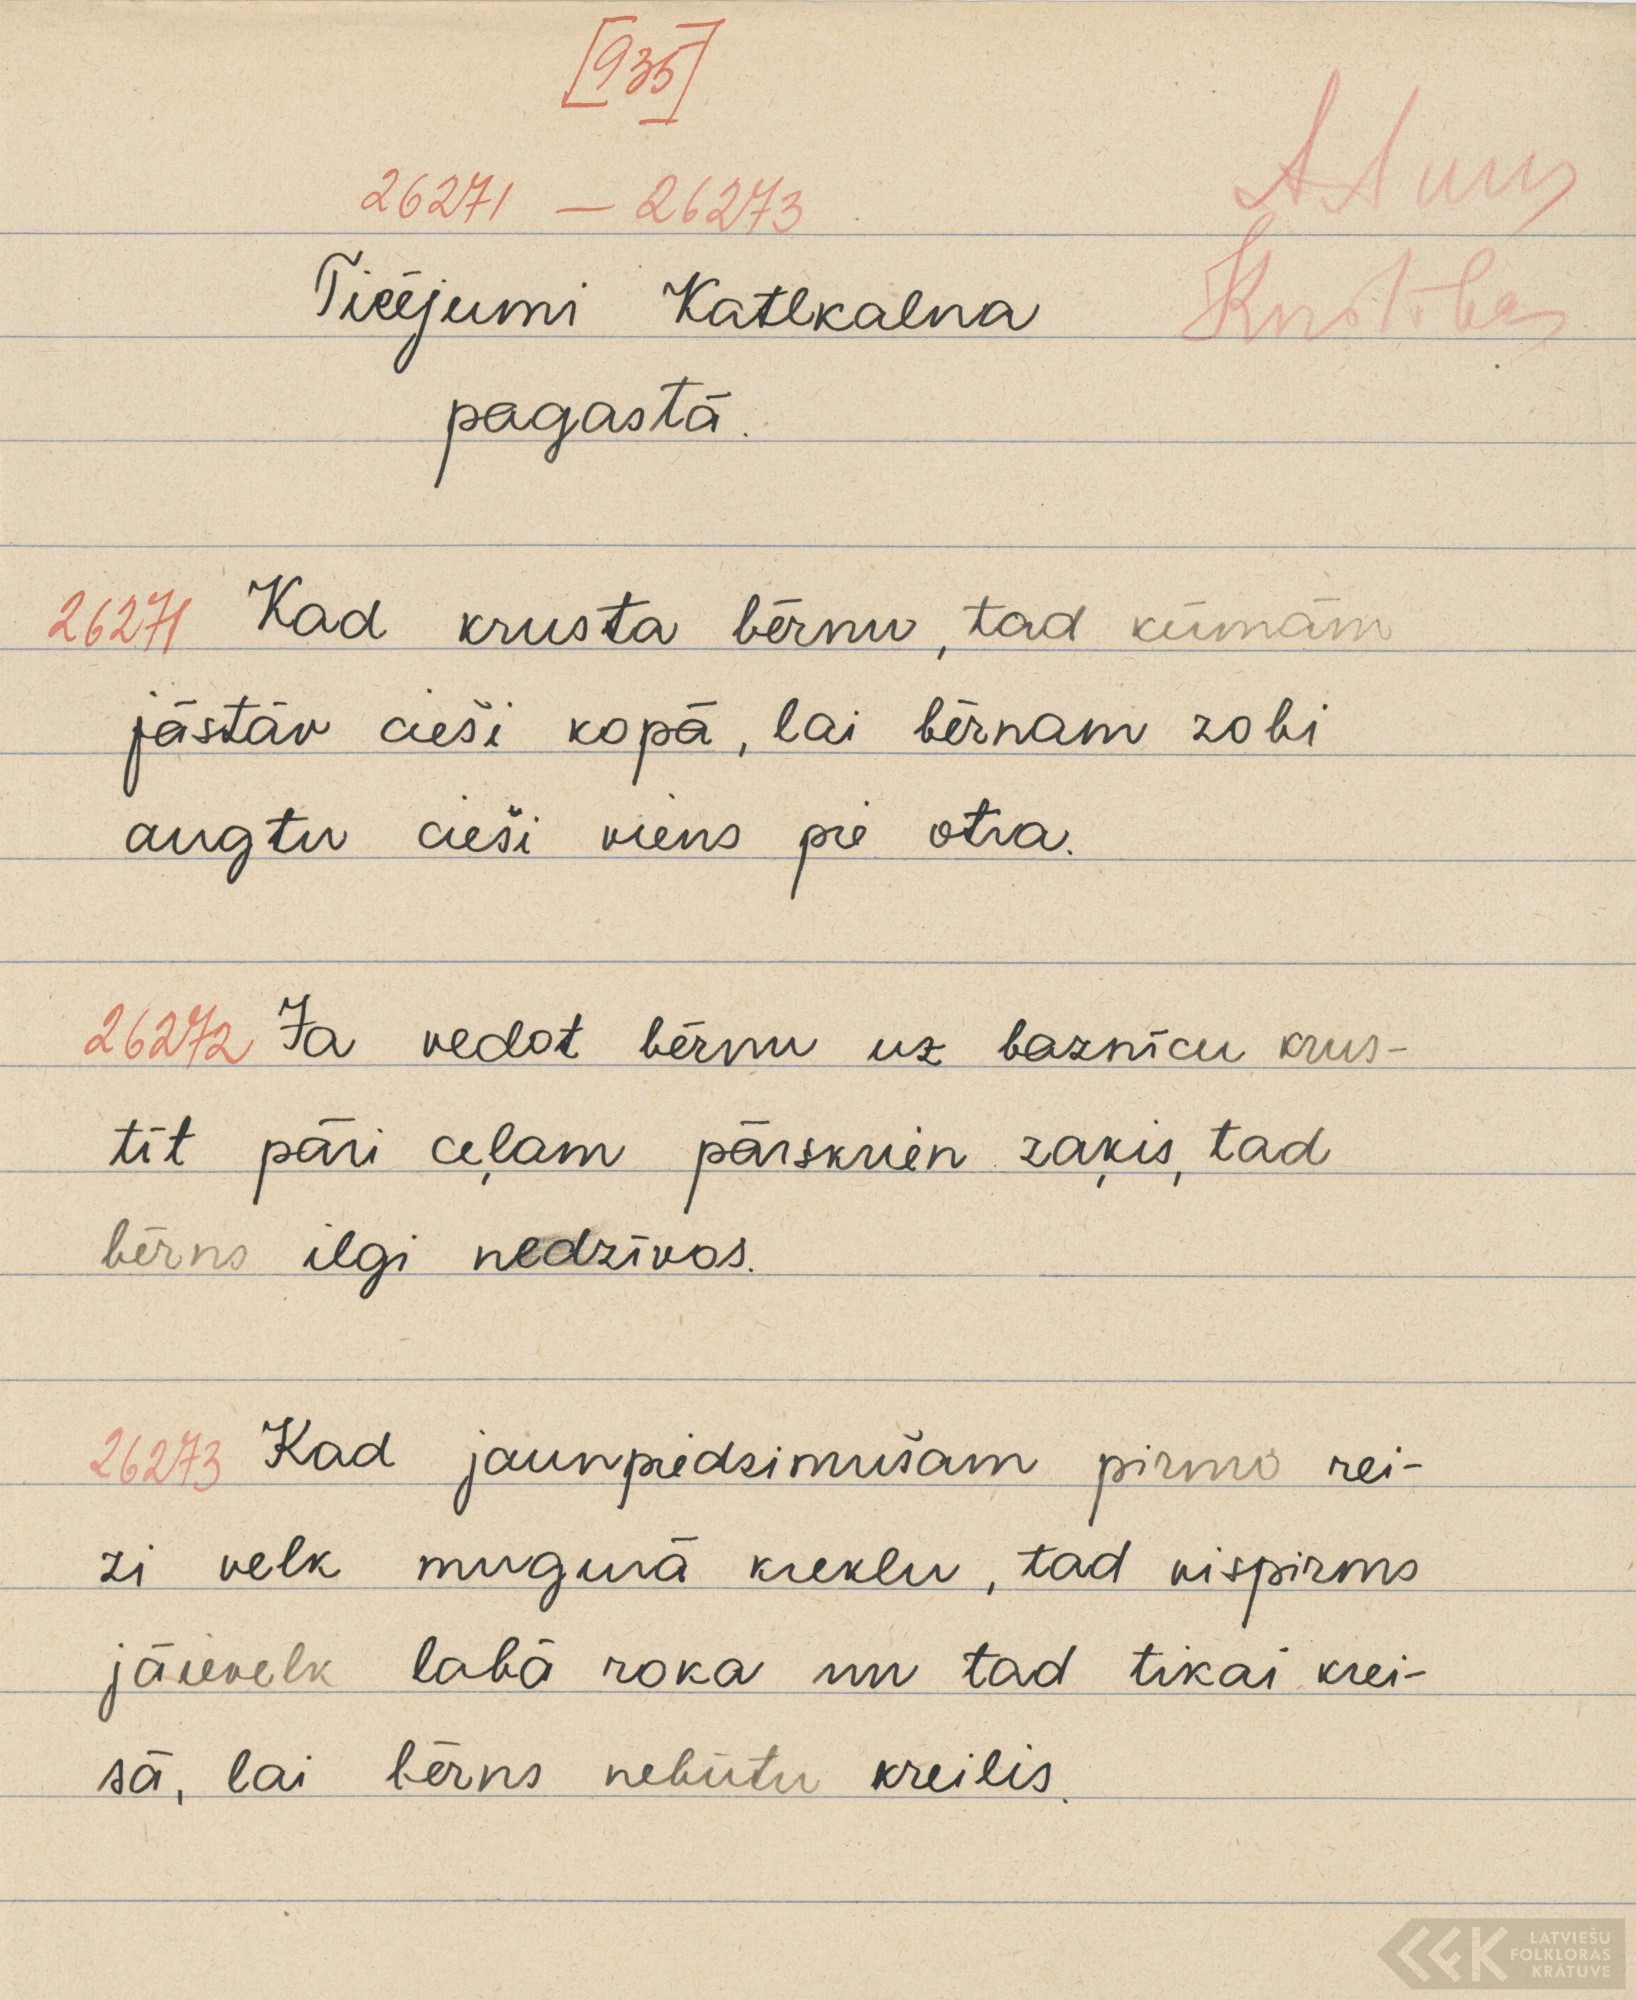 [935]
26271 — 26273
Ticējumi Katlkalna
pagastā.
26271 Kad krusta bērnu, tad kūmām
jāstāv cieši kopā, lai bērnam zobi
augtu cieši viens pie otra.
26272 Ja vedot bērnu uz baznīcu krus-
tīt pāri ceļam pārskrien zaķis, tad
bērns ilgi nedzīvos.
26273 Kad jaunpiedzimušam pirmo rei-
zi velk mugurā kreklu, tad vispirms
jāievelk labā roka un tad tikai krei-
sā, lai bērns nebūtu kreilis.
LATVIEŠU
FOLKLORAS
KRĀTUVE